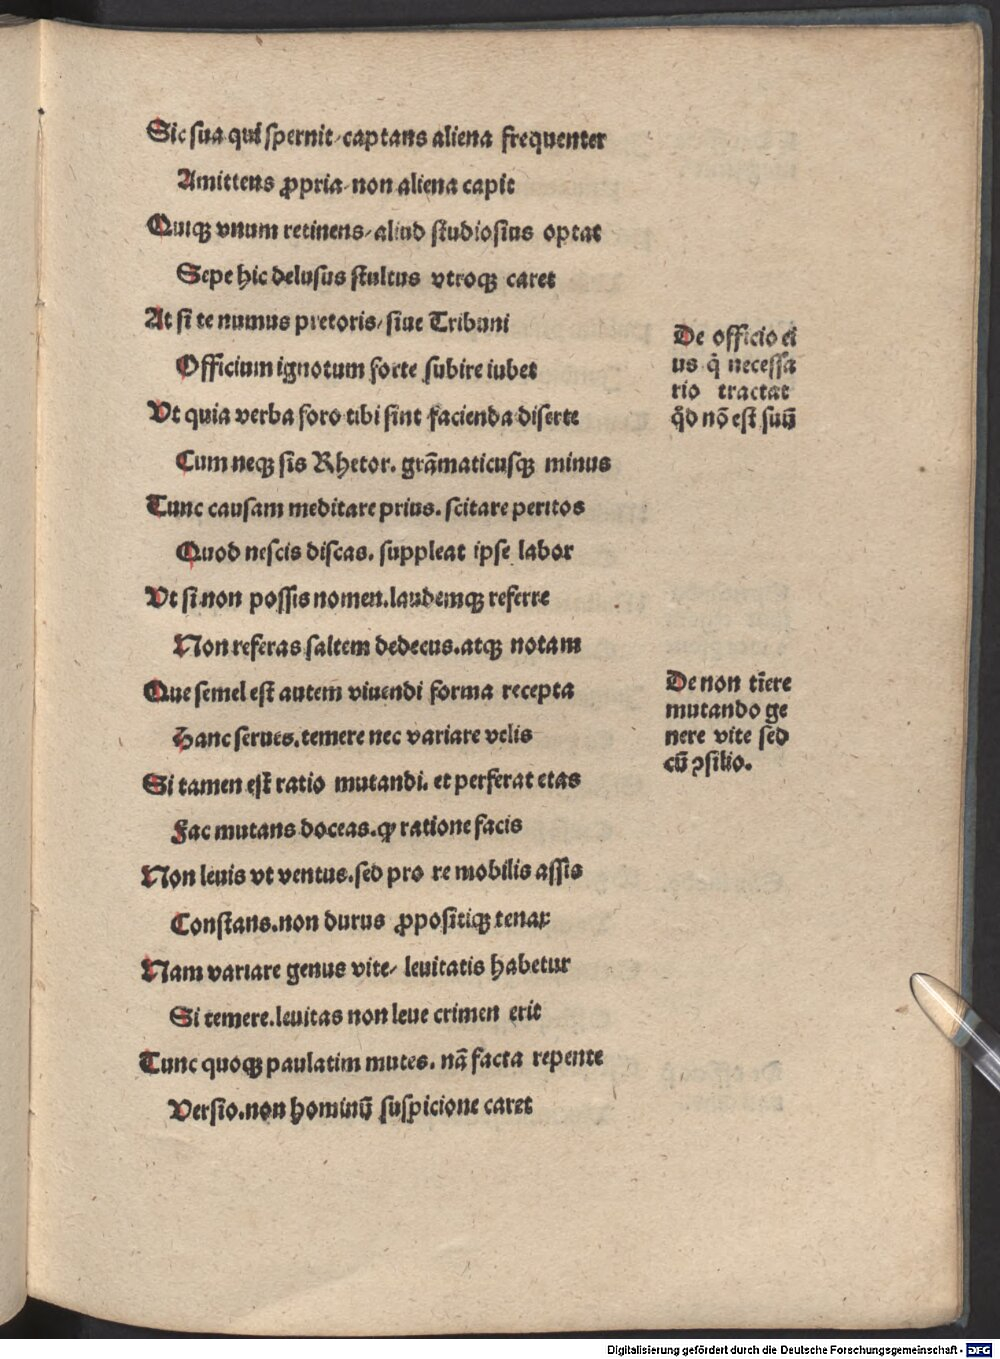 Sic sua qui spernit/captans aliena frequenter
Amittens ꝓpria/non aliena capit
Quiqꝫ vnum retinens/aliud studiosius optat
Sepe hic delusus stultus vtroqꝫ caret
At si te numus pretoris/siue Tribuni
Officium ignotum forte subire iubet
Vt quia verba foro tibi sint facienda diserte
Cum neqꝫ sis Rhetor. grãmaticusqꝫ minus
Tunc causam meditare prius. scitare peritos
Quod nescis discas. suppleat ipse labor
Vt si non possis nomen.laudemqꝫ referre
Non referas saltem dedecus.atqꝫ notam
Que semel est autem viuendi forma recepta
Hanc serues.temere nec variare velis
Si tamen est ratio mutandi. et perferat etas
Fac mutans doceas.ꝙ ratione facis
Non leuis vt ventus.sed pro re mobilis assis
Constans.non durus ꝓpositiqꝫ tenax
Nam variare genus vite/ leuitatis habetur
Si temere.leuitas non leue crimen erit
Tunc quoqꝫ paulatim mutes. nã facta repente
Versio.non hominũ suspicione caret
De officio ei
us q̃ necessa
rio tractat
q̃d nõ est suũ
De non tẽere
mutando ge
nere vite sed
cũ ꝯsilio.
Digitalisierung gefördert durch die Deutsche Forschungsgemeinschaft - DFG